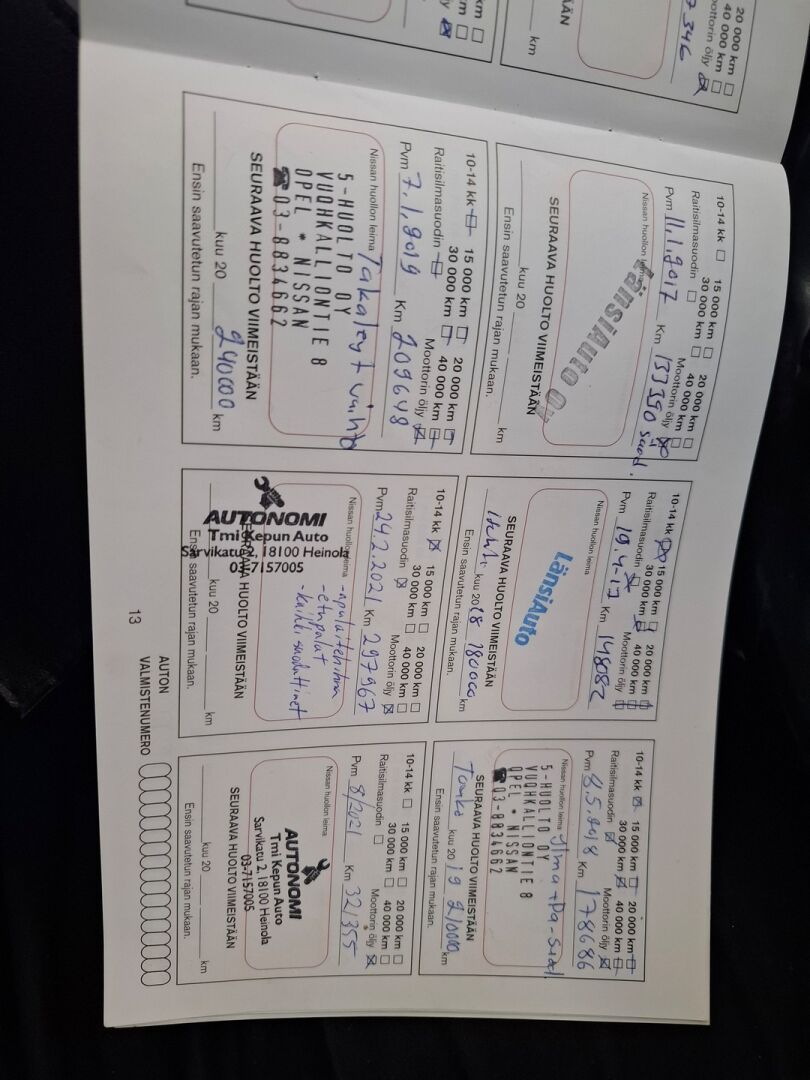 20 000 km
40 000 km
Moottorin öljy
7 346
km
km
10-14 kk
15 000 km
20 000 km
30 000 km
40 000 km
Raitisilmasuodin
Moottorin öljy
Pvm 11.1.2017 Km 133 350
Nissan huollon leima
LänsiAuto Oy
SEURAAVA HUOLTO VIIMEISTÄÄN
kuu 20 km
Ensin saavutetun rajan mukaan.
10-14 kk
15 000 km
20 000 km
30 000 km
40 000 km
Raitisilmasuodin
Moottorin öljy
Pvm 19.4-17 Km 148082
Nissan huollon leima
LänsiAuto
SEURAAVA HUOLTO VIIMEISTÄÄN
kuu 2018 180000 km
Ensin saavutetun rajan mukaan.
10-14 kk
15 000 km
20 000 km
30 000 km
40 000 km
Raitisilmasuodin
Moottorin öljy
Pvm 8.5.2018 Km 178686
Nissan huollon leima
5-HUOLTO OY
VUOHKALLIONTIE 8
OPEL * NISSAN
☎03-8834662
SEURAAVA HUOLTO VIIMEISTÄÄN
Touko kuu 2019 21000 km
Ensin saavutetun rajan mukaan.
10-14 kk
15 000 km
20 000 km
30 000 km
40 000 km
Raitisilmasuodin
Moottorin öljy
Pvm 7.1.2019 Km 209648
Nissan huollon leima
Takaleyt vaihto
5-HUOLTO OY
VUOHKALLIONTIE 8
OPEL * NISSAN
☎03-8834662
SEURAAVA HUOLTO VIIMEISTÄÄN
kuu 20 240000 km
Ensin saavutetun rajan mukaan.
10-14 kk
15 000 km
20 000 km
30 000 km
40 000 km
Raitisilmasuodin
Moottorin öljy
Pvm 24.2.2021 Km 297967
Nissan huollon leima
-apulaitehihna
-etupalat
-kaikki suodattimet
AUTONOMI
Tmi Kepun Auto
Sarvikatu 2, 18100 Heinola
03-7157005
SEURAAVA HUOLTO VIIMEISTÄÄN
kuu 20 km
Ensin saavutetun rajan mukaan.
10-14 kk
15 000 km
20 000 km
30 000 km
40 000 km
Raitisilmasuodin
Moottorin öljy
Pvm 8/2021 Km 321355
Nissan huollon leima
AUTONOMI
Tmi Kepun Auto
Sarvikatu 2, 18100 Heinola
03-7157005
SEURAAVA HUOLTO VIIMEISTÄÄN
kuu 20 km
Ensin saavutetun rajan mukaan.
13
AUTON
VALMISTENUMERO